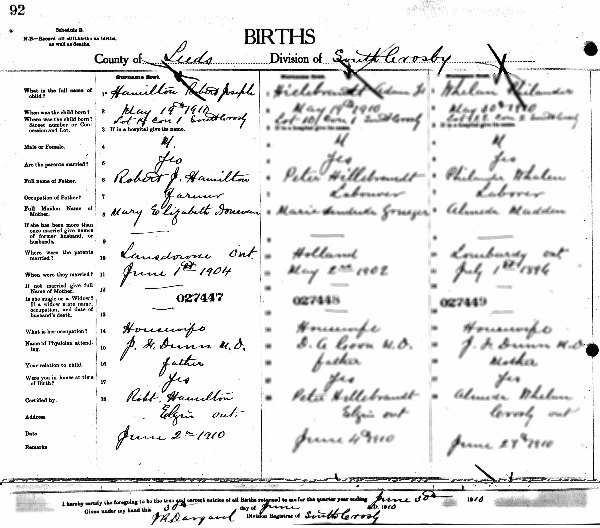 92
Schedule B.
N.B.—Record all stillbirths as births,
as well as deaths.
BIRTHS
County of Leeds Division of South Crosby
Surname first.
What is the full name of child? 1 Hamilton Robert Joseph Hillebrandt Adam Whelan Philander
When was the child born? 2 May 19th 1910 May 19th 1910 May 30th 1910
Where was the child born? Street number or Concession and Lot. 3 If in hospital give its name. Lot 19 Con 1 South Crosby Lot 10 Con 1 South Crosby Con 2 South Crosby
Male or Female. 4 M. M M
Are the parents married? 5 Yes Yes Yes
Full name of Father. 6 Robert J. Hamilton Peter Hillebrandt Philander Whelan
Occupation of Father? 7 Farmer Labourer Laborer
Full Maiden Name of Mother. 8 Mary Elizabeth Donevan Marie Almeda Madden
If she has been more than once married give names of former husband, or husbands. 9
Where were the parents married? 10 Lansdowne Ont. Holland Lombardy Ont
When were they married? 11 June 1st 1904 May 2nd 1902 July 1st 1896
If not married give full Name of Mother. 12
Is she single or a Widow? If a widow state name, occupation, and date of husband's death. 13 027447 027448 027449
What is her occupation? 14 Housewife Housewife Housewife
Name of Physician attending. 15 J. H. Dunn M.D. D. A. Coon M.D. J. H. Dunn M.D.
Your relation to child 16 father father Mother
Were you in house at time of Birth? 17 Yes Yes Yes
Certified by. 18 Robt. Hamilton Peter Hillebrandt Almeda Whelan
Address Elgin Ont. Elgin Ont Crosby Ont
Date June 2nd 1910 June 4th 1910 June 29th 1910
Remarks
I hereby certify the foregoing to be the true and correct entries of all Births returned to me for the quarter year ending June 30th 1910
Given under my hand this 30th day of June A.D. 1910
J R Dargavel Division Registrar of South Crosby